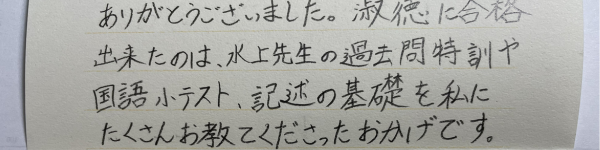 ありがとうございました。淑徳に合格
出来たのは、水上先生の過去問特訓や
国語小テスト、記述の基礎を私に
たくさんお教てくださったおかげです。